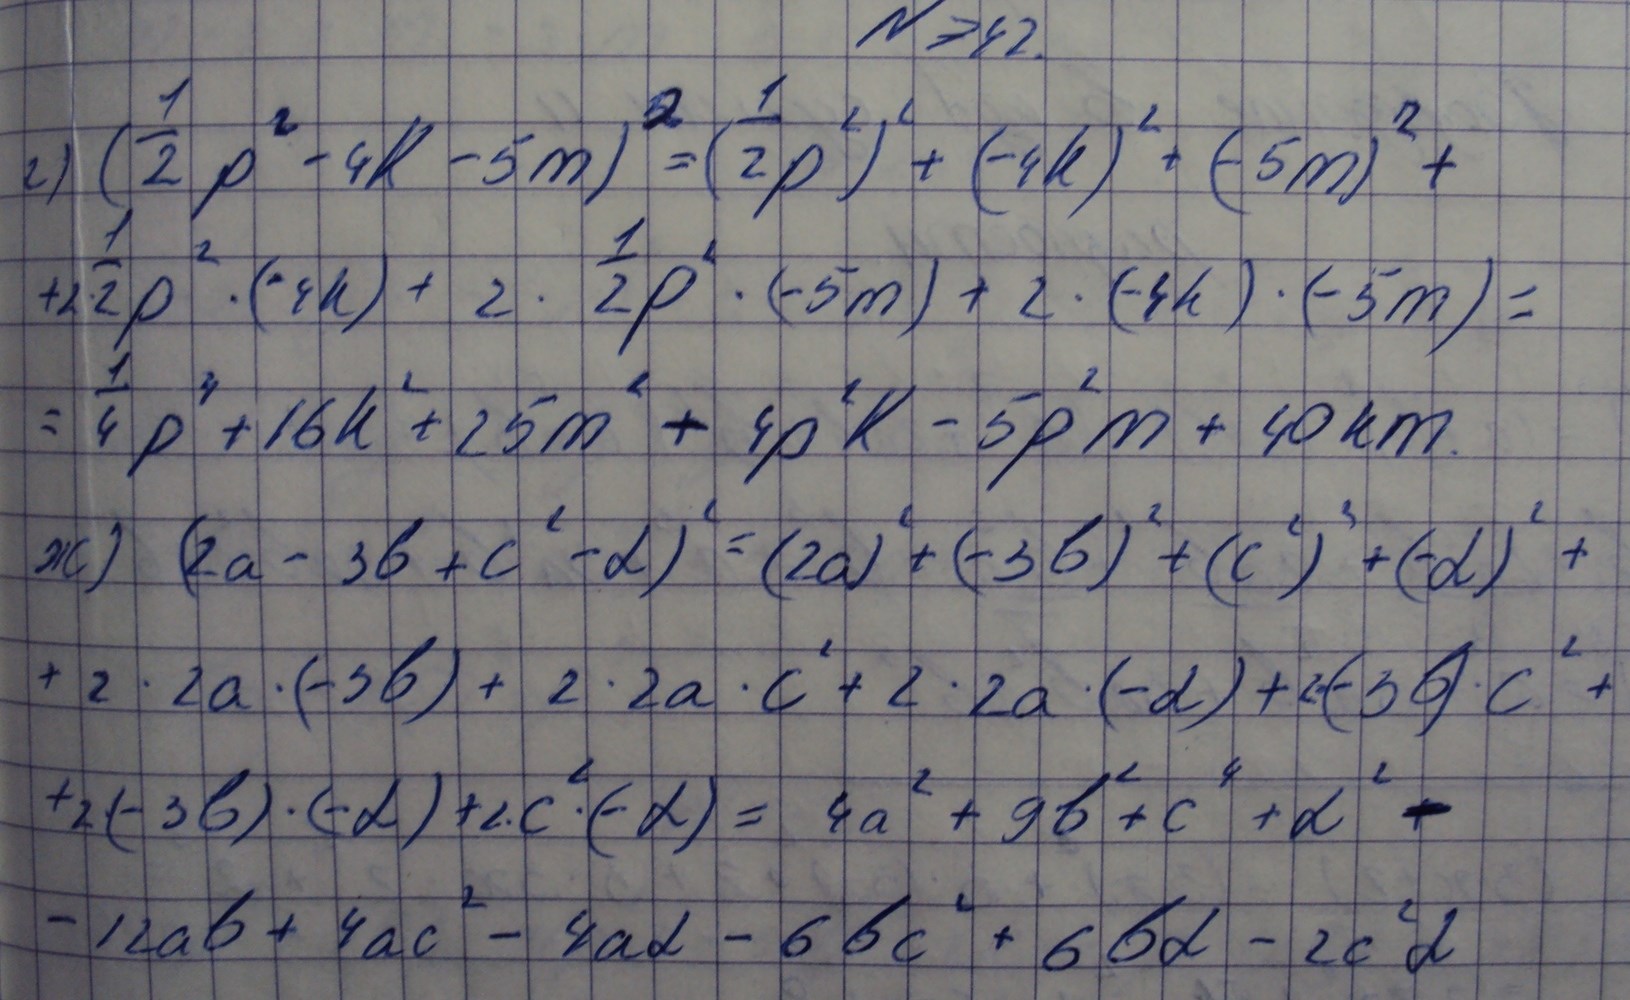 N 742.
г) (1/2 p² - 4k - 5m)² = (1/2 p²)² + (-4k)² + (-5m)² +
+ 2·1/2 p² · (-4k) + 2 · 1/2 p² · (-5m) + 2 · (-4k) · (-5m) =
= 1/4 p⁴ + 16k² + 25m² - 4p²k - 5p²m + 40km.
ж) (2a - 3b + c² - d)² = (2a)² + (-3b)² + (c²)² + (-d)² +
+ 2 · 2a · (-3b) + 2 · 2a · c² + 2 · 2a · (-d) + 2·(-3b) · c² +
+ 2·(-3b) · (-d) + 2·c² · (-d) = 4a² + 9b² + c⁴ + d² -
- 12ab + 4ac² - 4ad - 6bc² + 6bd - 2c²d